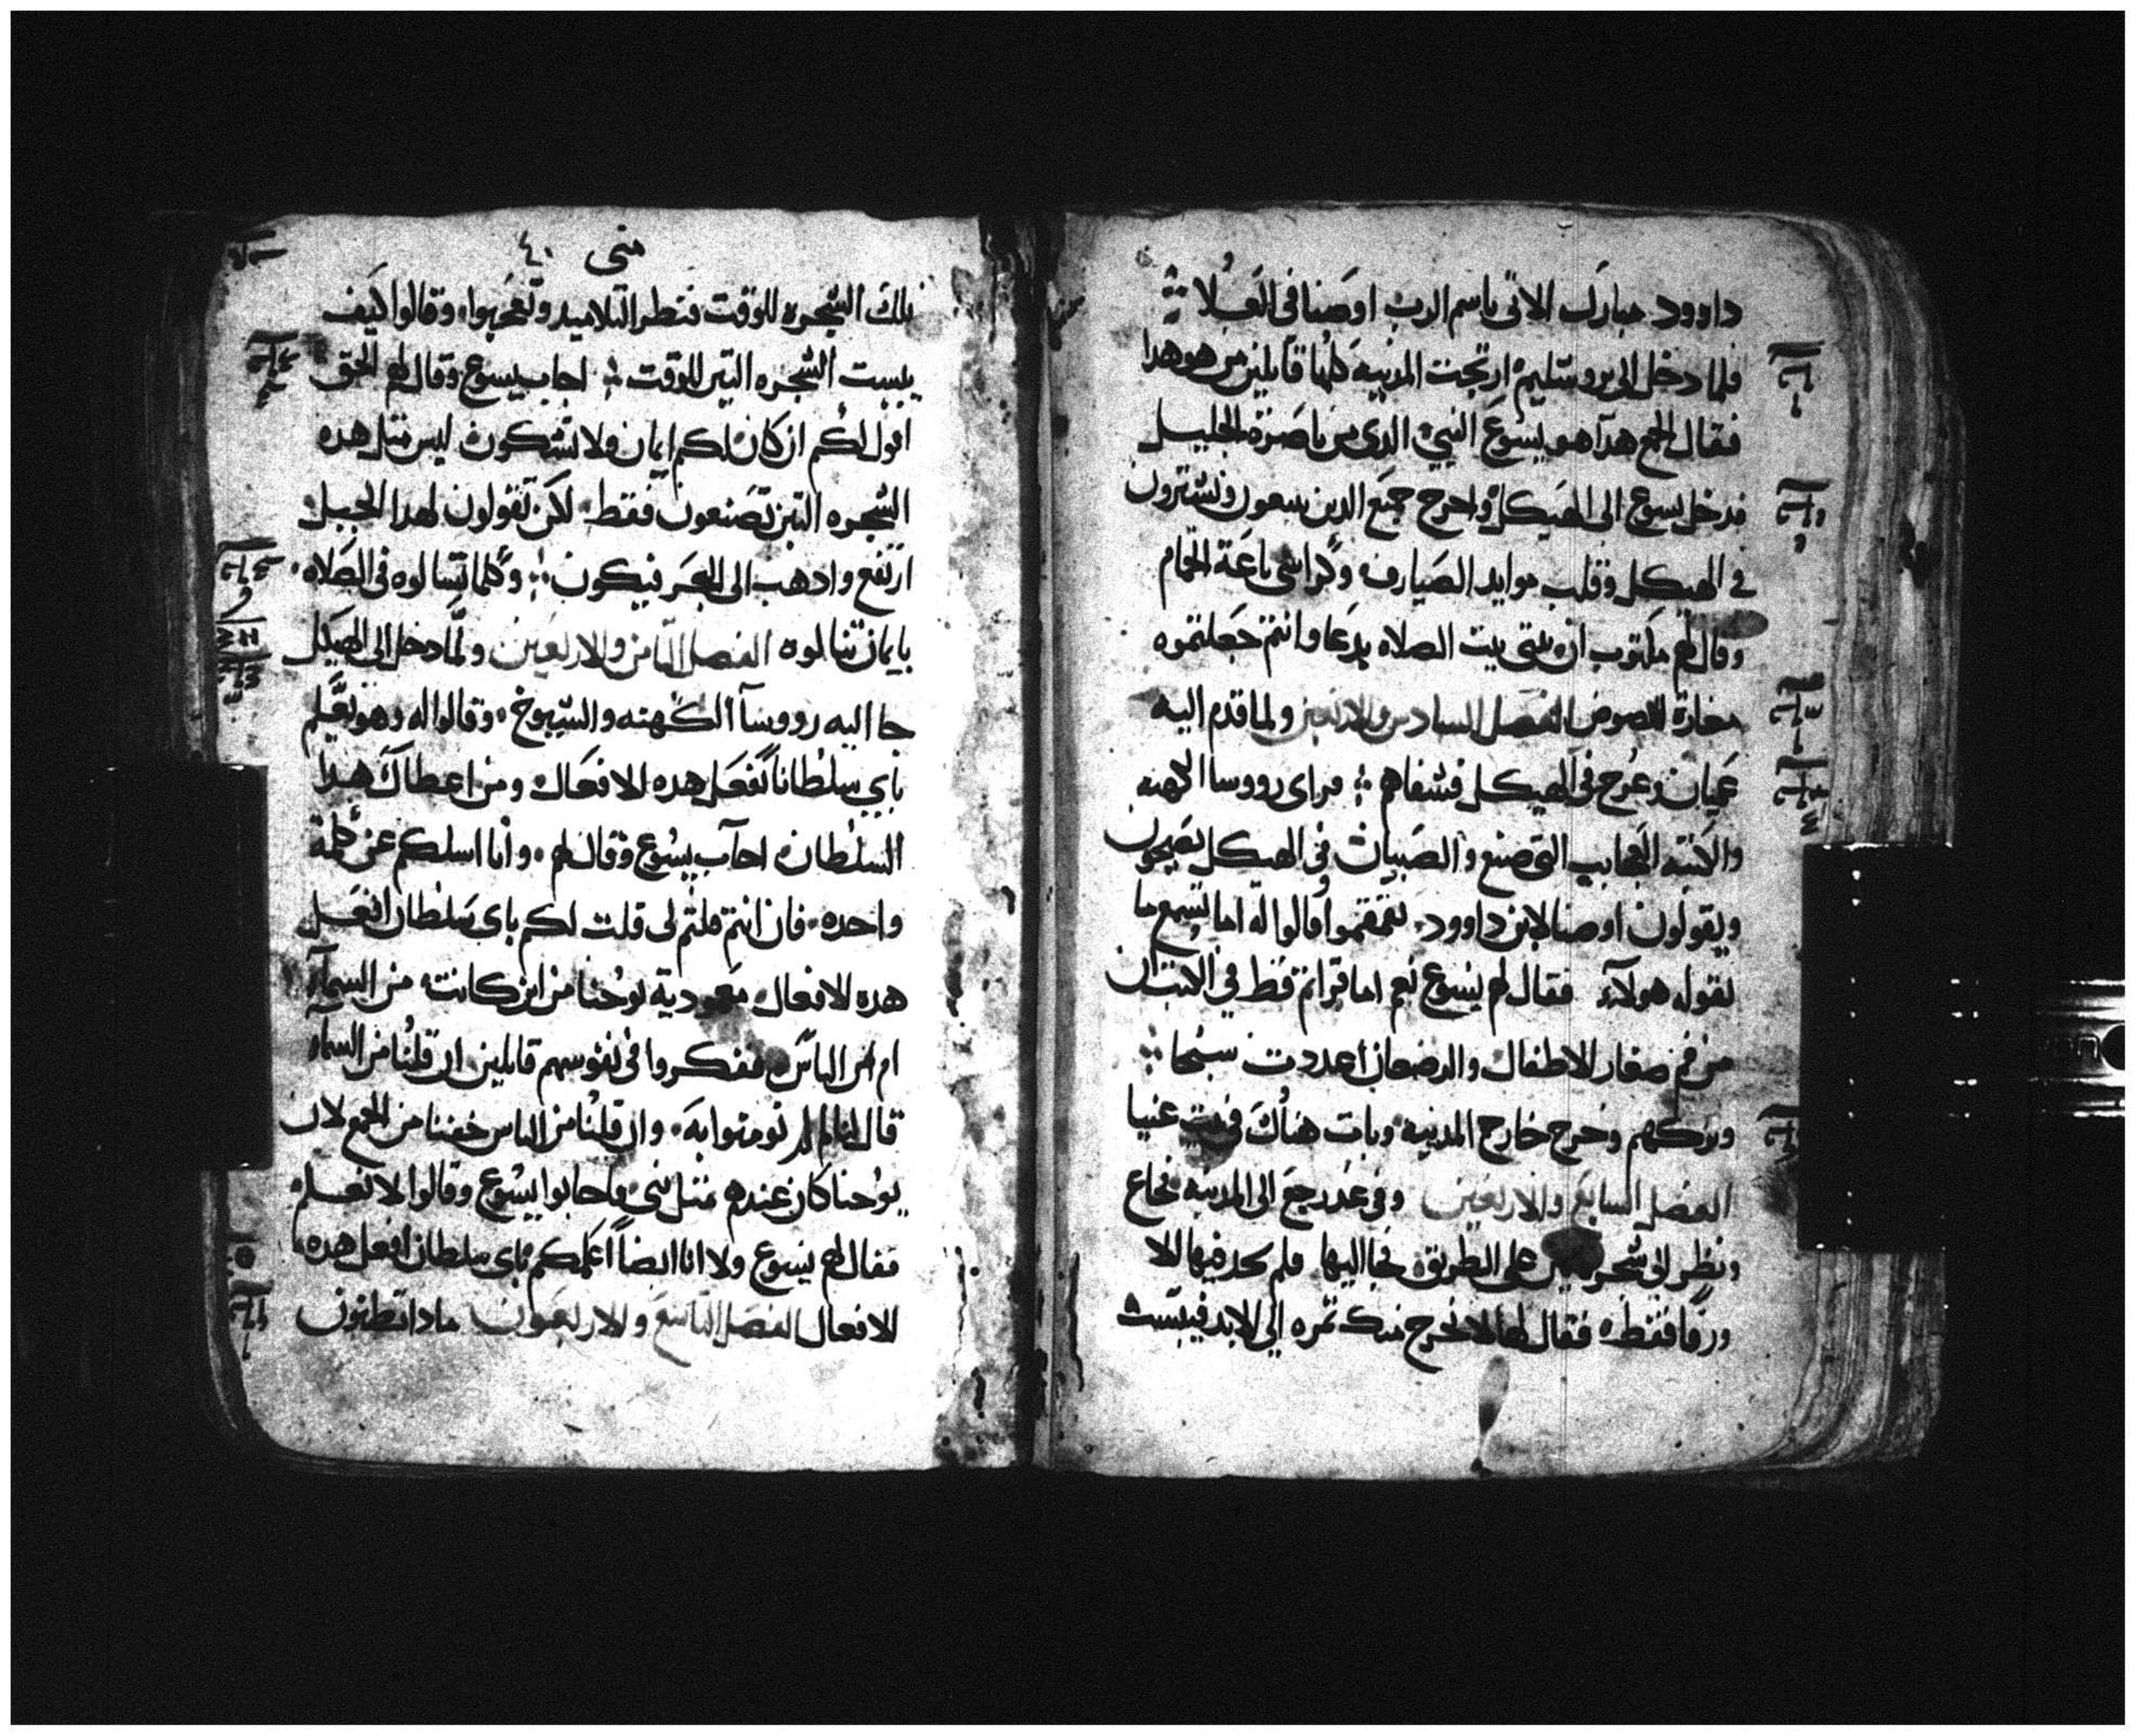 داوود مبارك الاتي باسم الرب اوصنا في العلا
فلما دخل الى يروشليم ارتجت المدينه كلها قايلين من هو هدا
فقال الجمع هدا هو يسوع النبي الدي من ناصرة الجليل
فدخل يسوع الى الهيكل واخرج جميع الدين يبيعون ويشترون
في الهيكل وقلب موايد الصيارف وكراسي باعة الحمام
وقال لهم مكتوب ان بيتي بيت الصلاه يدعا وانتم جعلتموه
مغارة للصوص الفصل السادس والاربعين ولما قدم اليه
عميان وعرج في الهيكل فشفاهم فراى رووسا الكهنه
والكتبه العجايب التي صنع والصبيان في الهيكل يصيحون
ويقولون اوصنا لابن داوود فتقمقموا وقالوا له اما تسمع ما
يقول هولاء فقال لهم يسوع نعم اما قراتم قط في الكتب ان
من فم صغار الاطفال والرضعان اعددت سبحا
وتركهم وخرج خارج المدينه وبات هناك في بيت عنيا
الفصل السابع والاربعين وفي غد رجع الى المدينه فجاع
ونظر الى شجره تين على الطريق فجا اليها فلم يجد فيها الا
ورقا فقط فقال لها لا تخرج منك تمره الى الابد فيبست
متى ٤٠
تلك الشجره للوقت فنظر التلاميد وتعجبوا وقالوا كيف
يبست الشجره التين للوقت اجاب يسوع وقال لهم الحق
اقول لكم ان كان لكم ايمان ولا تشكون ليس متل هده
الشجره التين تصنعون فقط لكن تقولون لهدا الجبل
ارتفع وادهب الى البحر فيكون وكلما تسالوه في الصلاه
بايمان تنالوه الفصل التامن والاربعين ولما دخل الى الهيكل
جا اليه رووسا الكهنه والشيوخ وقالوا له وهو يعلم
باي سلطانا تفعل هده الافعال ومن اعطاك هدا
السلطان اجاب يسوع وقال لهم وانا اسلكم عن كلمة
واحده فان انتم قلتم لي قلت لكم باي سلطان افعل
هده الافعال معمودية يوحنا من اين كانت من السماء
ام من الناس ففكروا في نفوسهم قايلين ان قلنا من السماء
قال لنا لم لم تومنوا به وان قلنا من الناس خفنا من الجمع لان
يوحنا كان عندهم متل نبي فاجابوا يسوع وقالوا لا نعلم
فقال لهم يسوع ولا انا ايضا اعلمكم باي سلطان افعل هده
الافعال الفصل التاسع والاربعون مادا تظنون